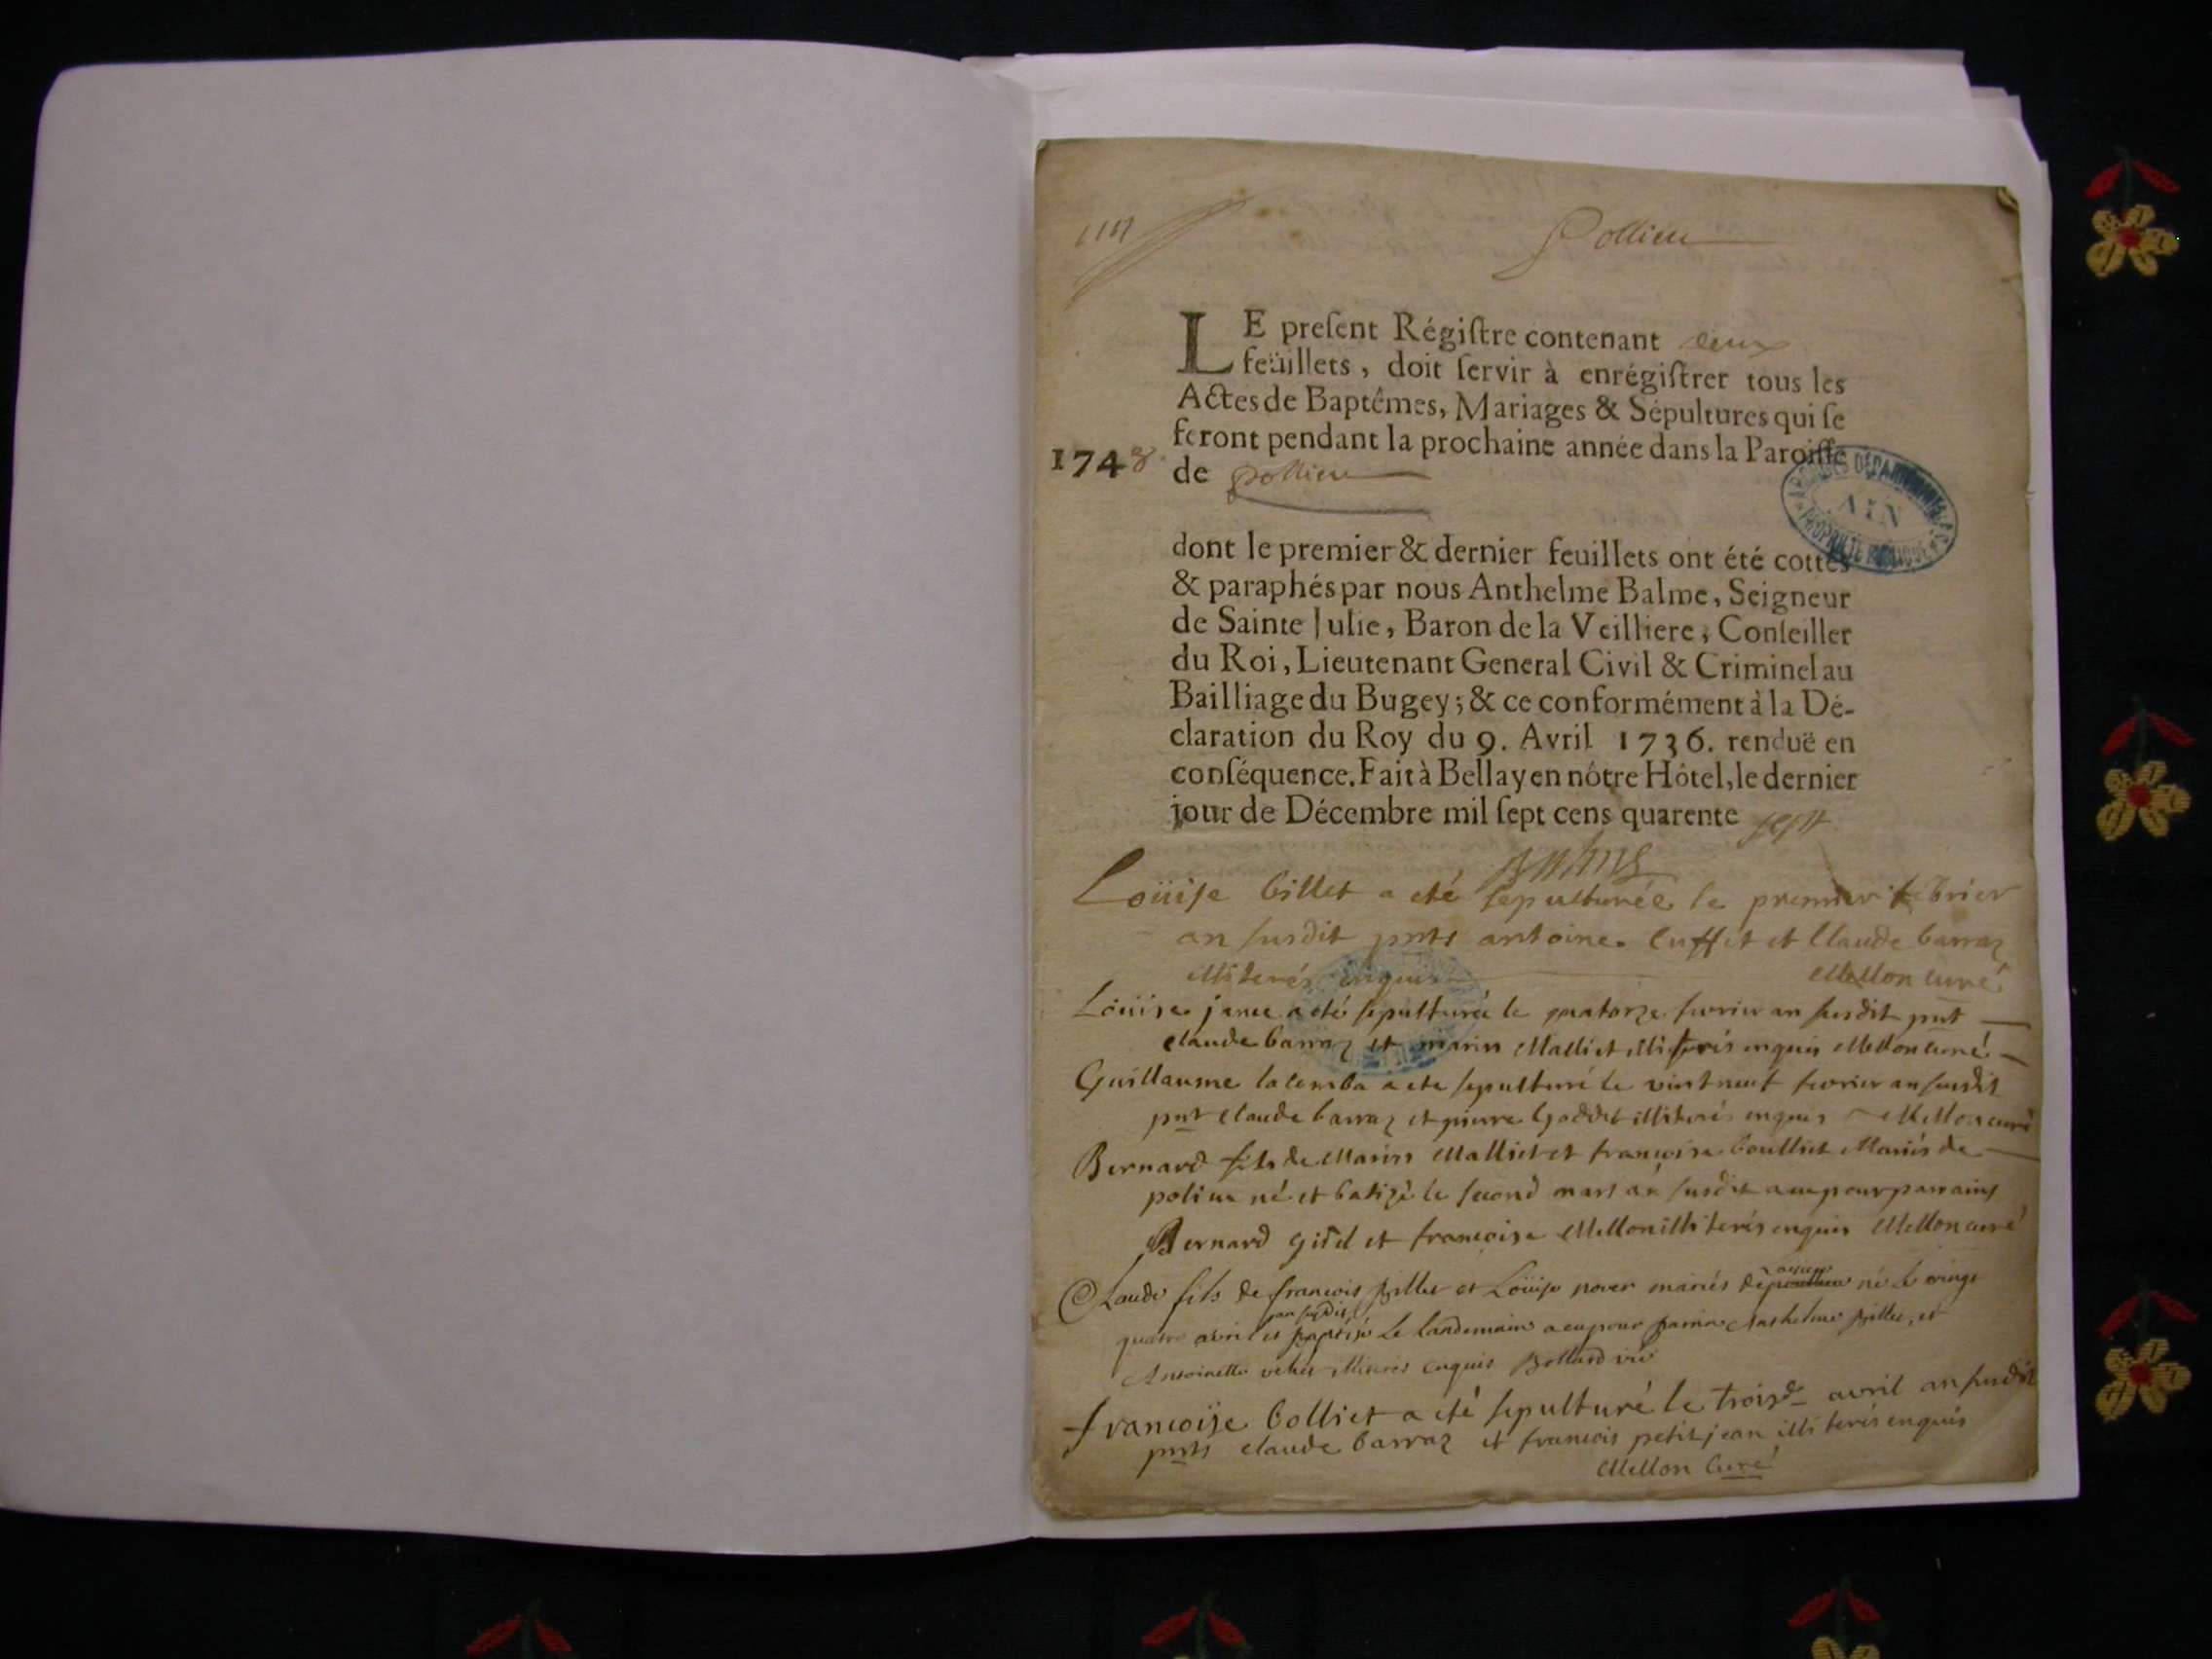 Pollieu
LE preſent Régiſtre contenant deux
feüillets, doit ſervir à enrégiſtrer tous les
Actes de Baptêmes, Mariages & Sépultures qui ſe
feront pendant la prochaine année dans la Paroiſſe
1748
de pollieu
ARCHIVES DÉPARTEMENTALES
AIN
PROPRIÉTÉ PUBLIQUE
dont le premier & dernier feuillets ont été cottés
& paraphés par nous Anthelme Balme, Seigneur
de Sainte Julie, Baron de la Veilliere, Conſeiller
du Roi, Lieutenant General Civil & Criminel au
Bailliage du Bugey; & ce conformément à la Dé-
claration du Roy du 9. Avril 1736. renduë en
conſéquence. Fait à Bellay en nôtre Hôtel, le dernier
jour de Décembre mil ſept cens quarente sept
Balme
Loüise billet a eté sepulturée le premier febrier
an susdit pnts antoine Cuffet et Claude barraz
illiterés enquis Mellon Curé
Loüise janee a eté sepulturée le quatorze fevrier an susdit pnt
claude barraz et marin Malliet illiterés enquis Mellon curé
Guillaume lacomba a ete sepulturé le vint neuf fevrier an susdit
pnt claude barraz et pierre illiterés enquis Mellon curé
Bernard fils de Marin Malliet et francoise boulliet Mariés de
polieu né et batizé le second mars an susdit a eu pour parrains
Bernard gidel et francoise Mellon illiterés enquis Mellon curé
Claude fils de francois billet et Loüise mariés de né le vingt
quatre avril an susdit et baptisé le landemain a eu pour parrin Anthelme billet, et
Antoinette illiterés enquis vic
francoise bolliet a eté sepulturé le trois avril an susdit
pnts claude barraz et francois petit jean illiterés enquis
Mellon Curé